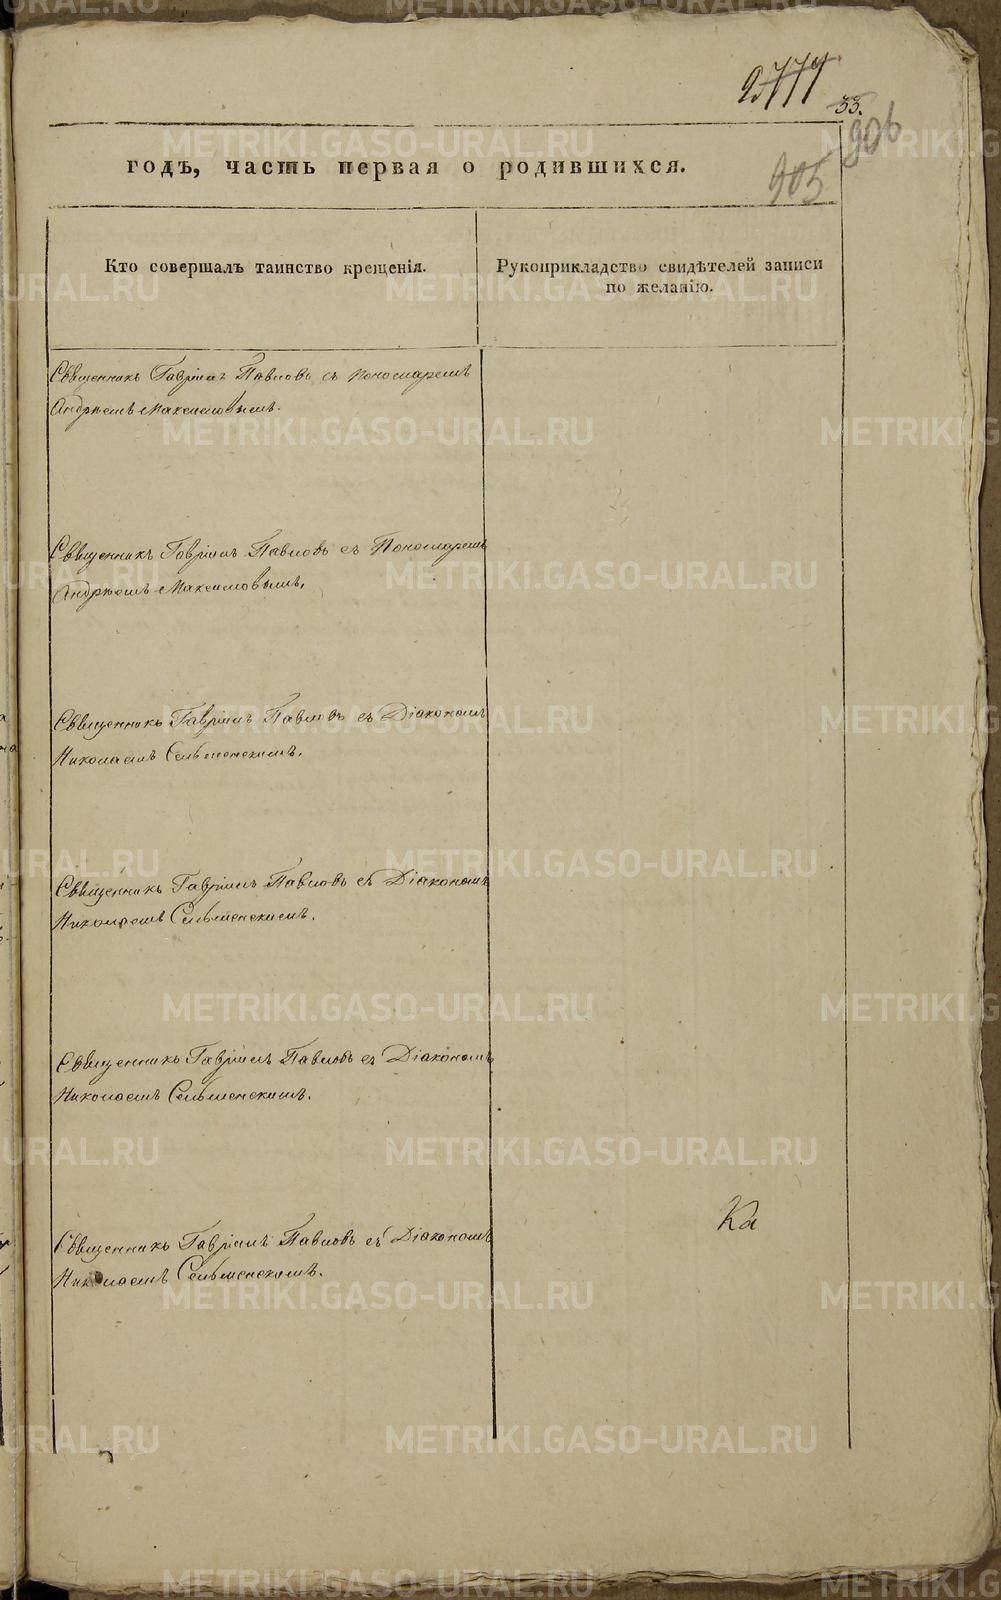 33.
906
годъ, часть первая о родившихся.
905
Кто совершалъ таинство крещенія.
Рукоприкладство свидѣтелей записи
по желанію.
Священникъ Гавріилъ Павловъ съ Пономаремъ
Андреемъ Максимовымъ.
Священникъ Гавріилъ Павловъ съ Пономаремъ
Андреемъ Максимовымъ.
Священникъ Гавріилъ Павловъ съ Діакономъ
Николаемъ Сельменскимъ.
Священникъ Гавріилъ Павловъ съ Діакономъ
Николаемъ Сельменскимъ.
Священникъ Гавріилъ Павловъ съ Діакономъ
Николаемъ Сельменскимъ.
Священникъ Гавріилъ Павловъ съ Діакономъ
Николаемъ Сельменскимъ.
Ка
METRIKI.GASO-URAL.RU